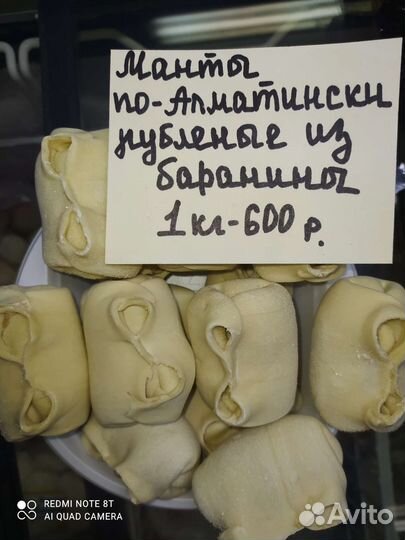 Манты
по-Алматински
рубленые из
баранины
1кг-600 р.
REDMI NOTE 8T
AI QUAD CAMERA
Avito